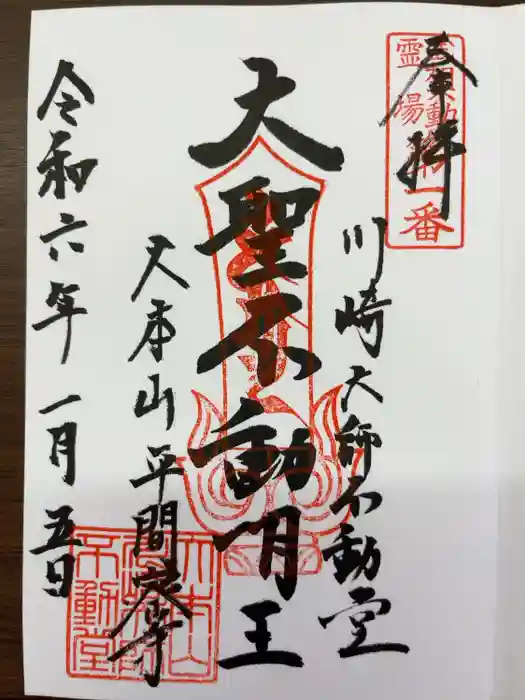 奉拝
霊場
一番
川崎大師不動堂
大聖不動明王
大本山平間寺
令和六年一月五日
大本山
不動堂